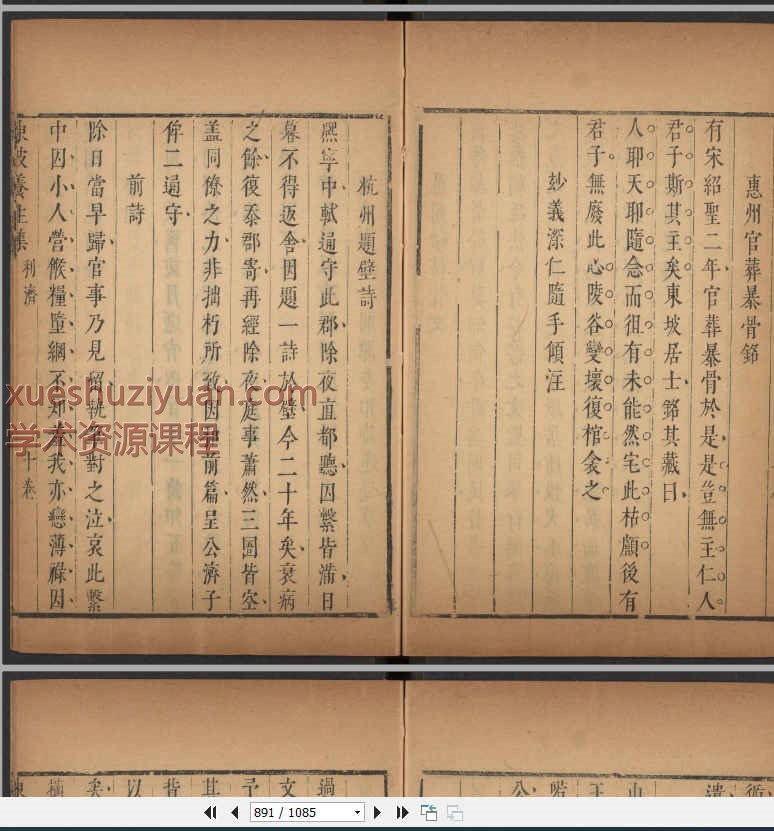 惠州官葬暴骨銘
有宋紹聖二年官葬暴骨於是是豈無主仁人
君子斯其主矣東坡居士銘其藏曰
人耶天耶隨念而徂有未能然宅此枯顱後有
君子無廢此心陵谷變壞復棺衾之
妙義深仁隨手傾注
杭州題壁詩
熙寧中軾通守此郡除夜直都聽囚繫皆滿日
暮不得返舍因題一詩於壁今二十年矣衰病
之餘復忝郡寄再經除夜庭事蕭然三圄皆空
蓋同僚之力非拙朽所致因和前篇呈公濟子
侔二通守
前詩
除日當早歸官事乃見留執筆對之泣哀此繫
中囚小人營餱糧墮網不知羞我亦戀薄祿因
利濟
十卷
xueshuziyuan.com
学术资源课程
循
遺
山
王
啫
公
過
文
予
其
背
以
矣
891 / 1085